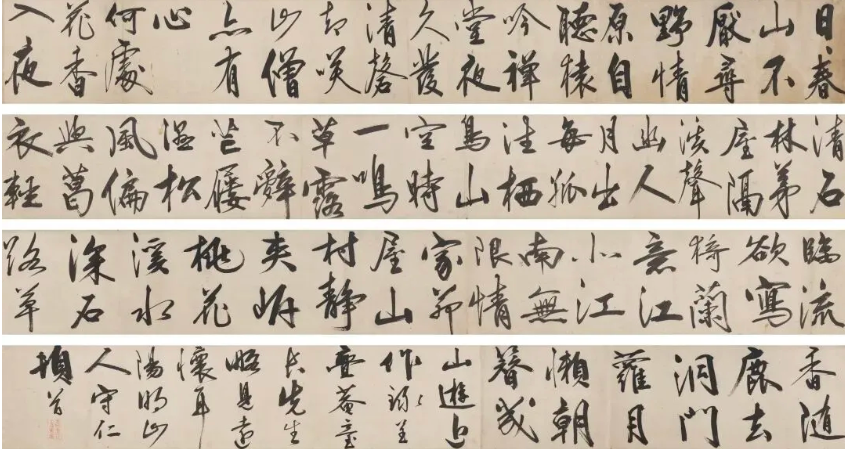 日春
山不
厭尋
野情
原自
聽猿
吟禪
堂夜
久發
清磬
却咲
山僧
亦有
心
何處
花香
入夜
清石
林茅
屋隔
溪聲
幽人
月出
每孤
往栖
鳥山
空時
一鳴
草露
不辭
芒屨
濕松
風偏
與葛
衣輕
臨流
欲寫
猗蘭
意江
北江
南無
限情
家茆
屋山
村靜
夾岍
桃花
溪水
深石
路草
香隨
鹿去
洞門
蘿月
懶朝
簪
山遊近
作錄呈
菴臺
長先生
略見遠
懷耳
陽明山
人守仁
頓首